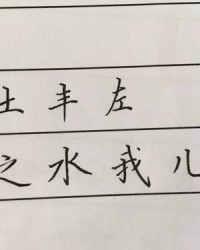 土丰左
之水我儿